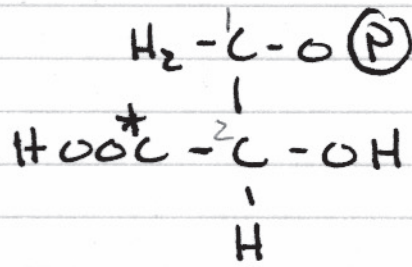 H₂ - ¹C - O Ⓟ
|
HOOC* - ²C - OH
|
H